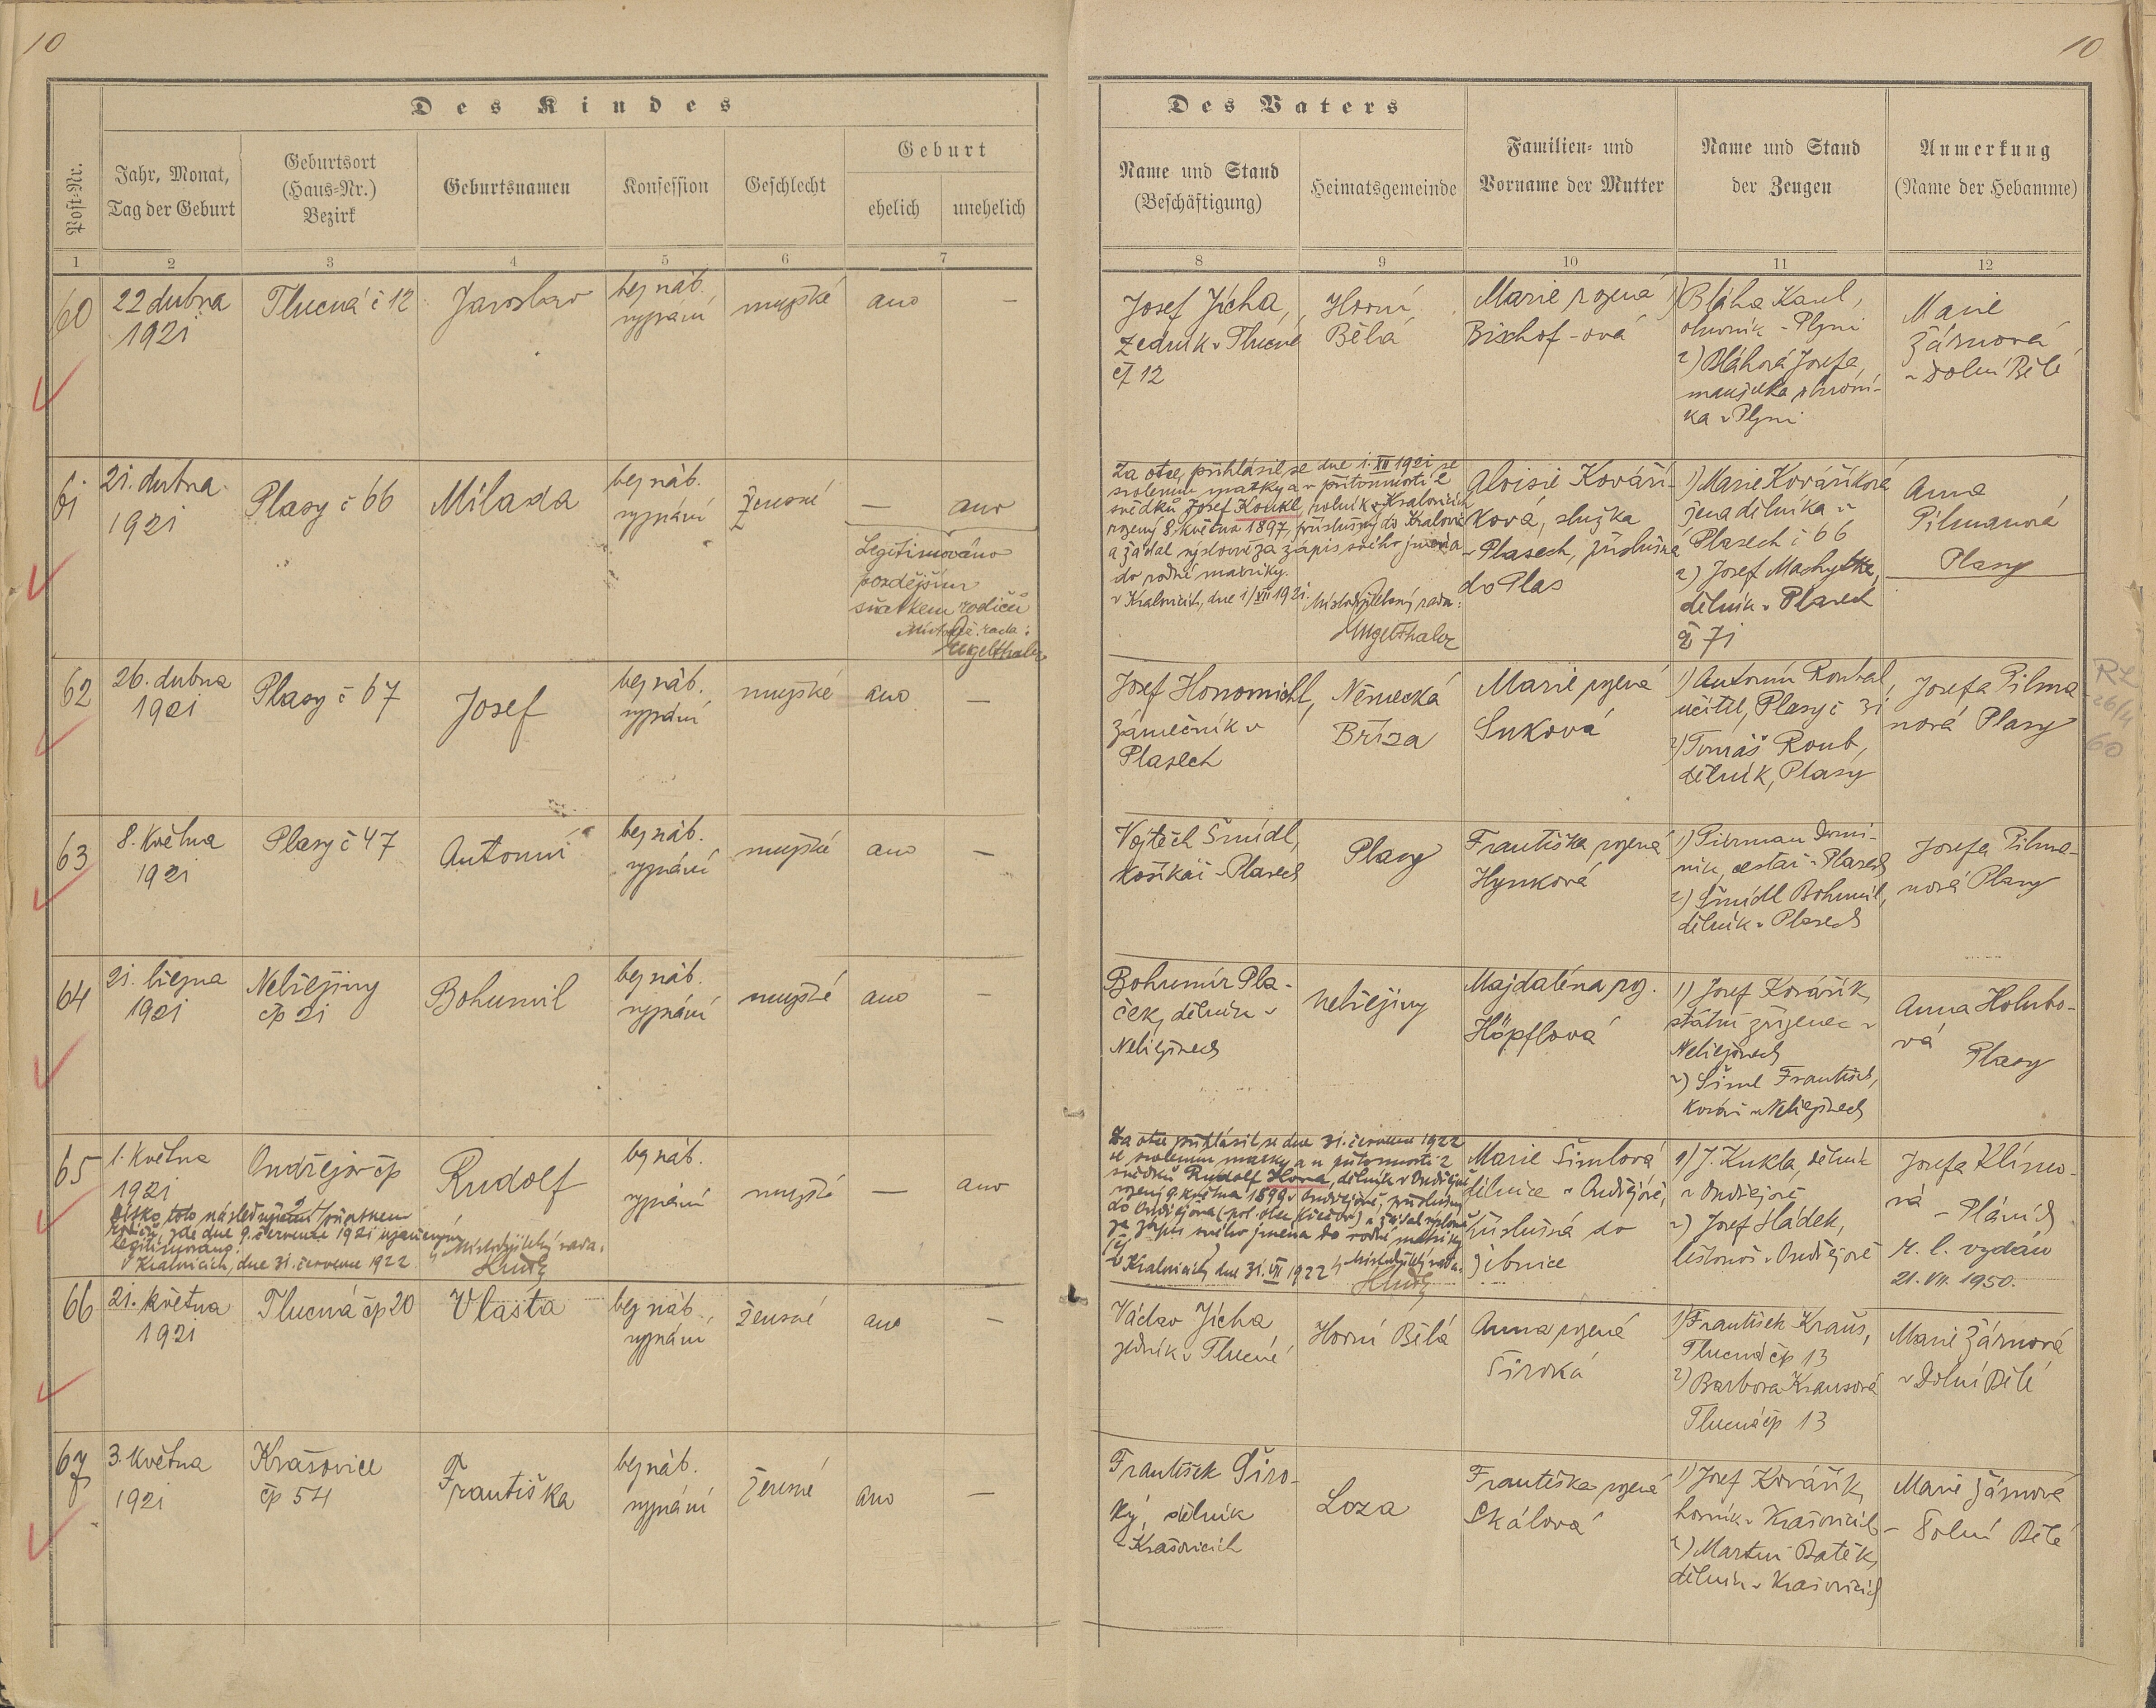 10
10
Des Kindes
Des Vaters
Post-Nr.
Jahr, Monat,
Tag der Geburt
Geburtsort
(Haus-Nr.)
Bezirk
Geburtsnamen
Konfession
Geschlecht
Geburt
ehelich
unehelich
Name und Stand
(Beschäftigung)
Heimatsgemeinde
Familien- und
Vorname der Mutter
Name und Stand
der Zeugen
Anmerkung
(Name der Hebamme)
1 2 3 4 5 6 7 8 9 10 11 12
60
22 dubna
1921
Tlucná č 12
Jaroslav
bez náb.
vyznání
mužské
ano
—
Josef Jícha,
zedník v Tlucné
čp 12
Horní
Bělá
Marie rozená
Bischof-ová
1) Bláha Karel,
v Plzni
2) Bláhová Josefa,
manželka
ka v Plzni
Marie
Žárnová
v Dolní Bělé
61
21. dubna
1921
Plasy č 66
Milada
bez náb.
vyznání
Ženské
—
ano
Legitimováno
pozdějším
sňatkem rodičů
Místodrž. rada:
Engelthaler
Za otce, přihlásil se dne 1. XII 1921 se
svolením matky a v přítomnosti 2
svědků Josef Koukl, rolník v Kralovicích
rozený 8. května 1897, příslušný do Kralovic
a žádal výslovně za zápis svého jména
do rodné matriky.
v Kralovicích, dne 1/XII 1921. Místodržitelský rada:
Engelthaler
Aloisie Kováří-
ková, služka
v Plasech, příslušná
do Plas
1) Marie Kováříková
žena dělníka v
Plasech č 66
2) Josef Machytka,
dělník v Plasech
č 71
Anna
Pilmanová
Plasy
62
26. dubna
1921
Plasy č 67
Josef
bez náb.
vyznání
mužské
ano
—
Josef Honomichl,
zámečník v
Plasech
Německá
Bříza
Marie rozená
Suková
1) Antonín Roubal,
učitel, Plasy č 31
2) Tomáš Roub,
dělník, Plasy
Josefa Pilma-
nová Plasy
RL
26/4
60
63
8. května
1921
Plasy č 47
Antonín
bez náb.
vyznání
mužské
ano
—
Vojtěch Šmídl,
košíkář v Plasech
Plasy
Františka rozená
Hynková
1) Pirman Domi-
nik, cestář v Plasech
2) Šmídl Bohumil,
dělník v Plasech
Josefa Pilma-
nová Plasy
64
21. března
1921
Nebřeziny
čp 21
Bohumil
bez náb.
vyznání
mužské
ano
—
Bohumír Pla-
ček, dělník v
Nebřezinech
Nebřeziny
Majdaléna roz.
Höpflová
1) Josef Kovářík,
státní zřízenec v
Nebřezinech
2) Šiml František,
kovář v Nebřezinech
Anna Holubo-
vá
Plasy
65
1. května
1921
Ondřejov čp
2
Rudolf
bez náb.
vyznání
mužské
—
ano
Dítko toto následujícím sňatkem
rodičů, zde dne 9. července 1921 uzavřeným
legitimováno.
V Kralovicích, dne 31. července 1922
Místodržitelský rada:
Hrudý
Za otce přihlásil se dne 31. července 1922
se svolením matky a v přítomnosti 2
svědků Rudolf Hora, dělník v Ondřejově
rozený 9. května 1899 v Ondřejově, příslušný
do Ondřejova a žádal výslovně
za zápis svého jména do rodné matriky
V Kralovicích, dne 31. VII 1922 Místodržitelský rada:
Hrudý
Marie Šimlová
dělnice v Ondřejově,
příslušná do
Žibnice
1) J. Kukla, dělník
v Ondřejově
2) Josef Hádek,
listonoš v Ondřejově
Josefa Klímo-
vá
– Pláních
r. l. vydán
21. VII. 1950.
66
21. května
1921
Tlucná čp 20
Vlasta
bez náb.
vyznání
ženské
ano
—
Václav Jícha
zedník v Tlucné
Horní Bělá
Anna rozená
Široká
1) František Kraus,
Tlucná čp 13
2) Barbora Krausová
Tlucná čp 13
Marie Žárnová
v Dolní Bělé
67
3. května
1921
Krašovice
čp 54
Františka
bez náb.
vyznání
ženské
ano
—
František Širo-
ký, dělník
v Krašovicích
Loza
Františka rozená
Skálová
1) Josef Kovářík,
horník v Krašovicích
2) Martin Baťěk,
dělník v Krašovicích
Marie Žárnová
– Dolní Bělé